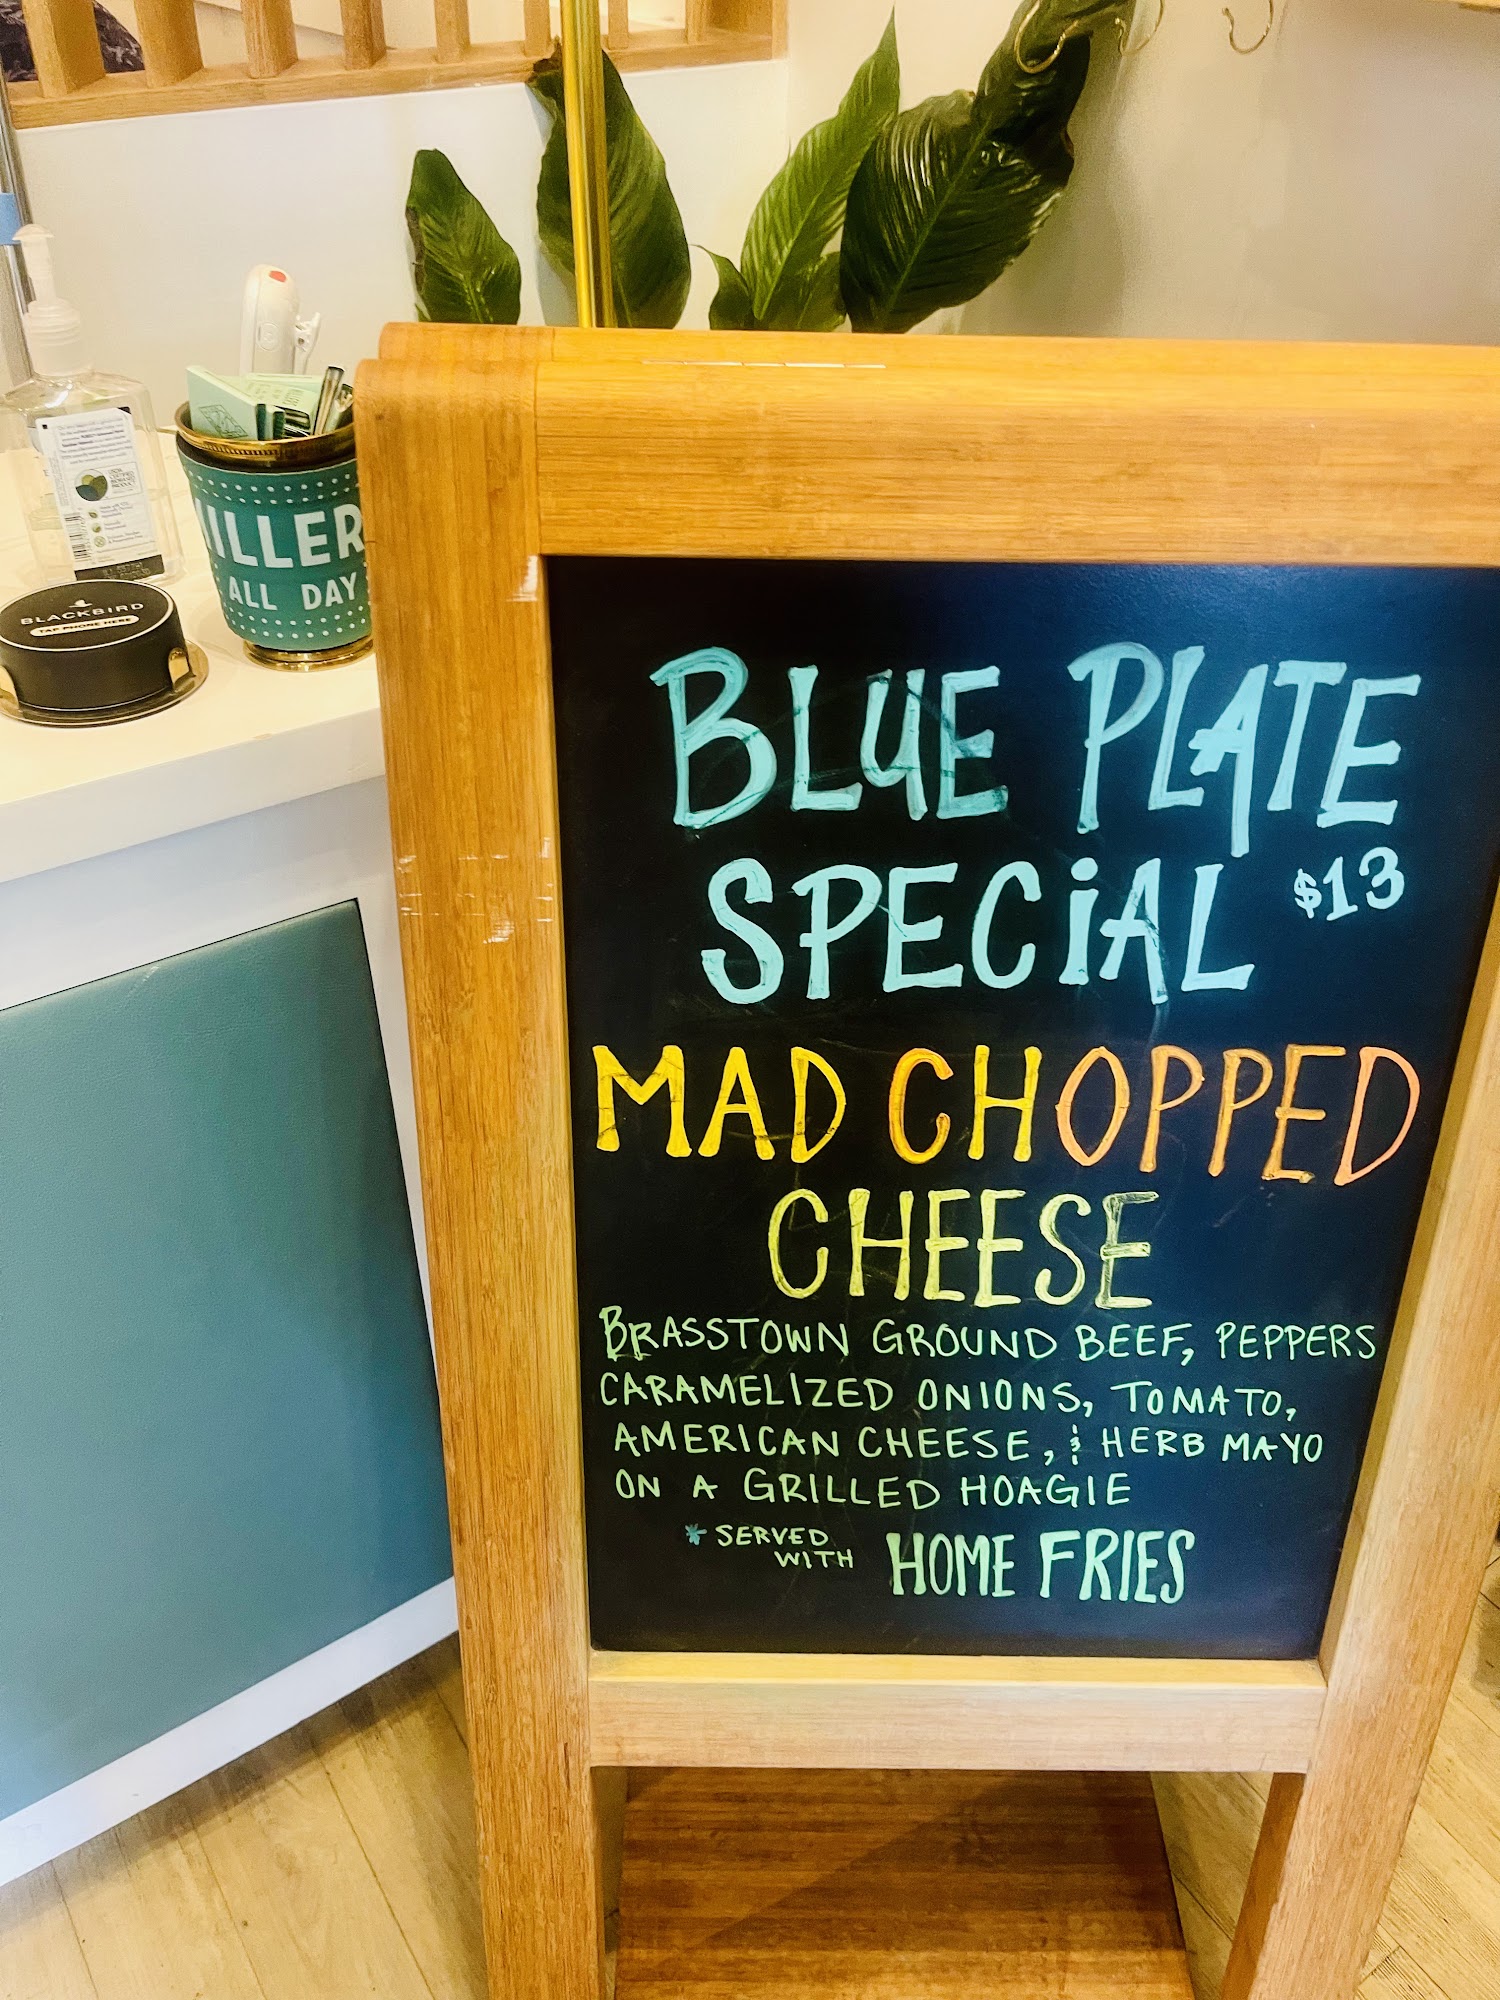 BLACKBIRD
TAP PHONE HERE
ILLER
ALL DAY
BLUE PLATE
SPECiAL $13
MAD CHOPPED
CHEESE
BRASSTOWN GROUND BEEF, PEPPERS
CARAMELIZED ONIONS, TOMATO,
AMERICAN CHEESE, & HERB MAYO
ON A GRILLED HOAGIE
* SERVED
WITH HOME FRIES